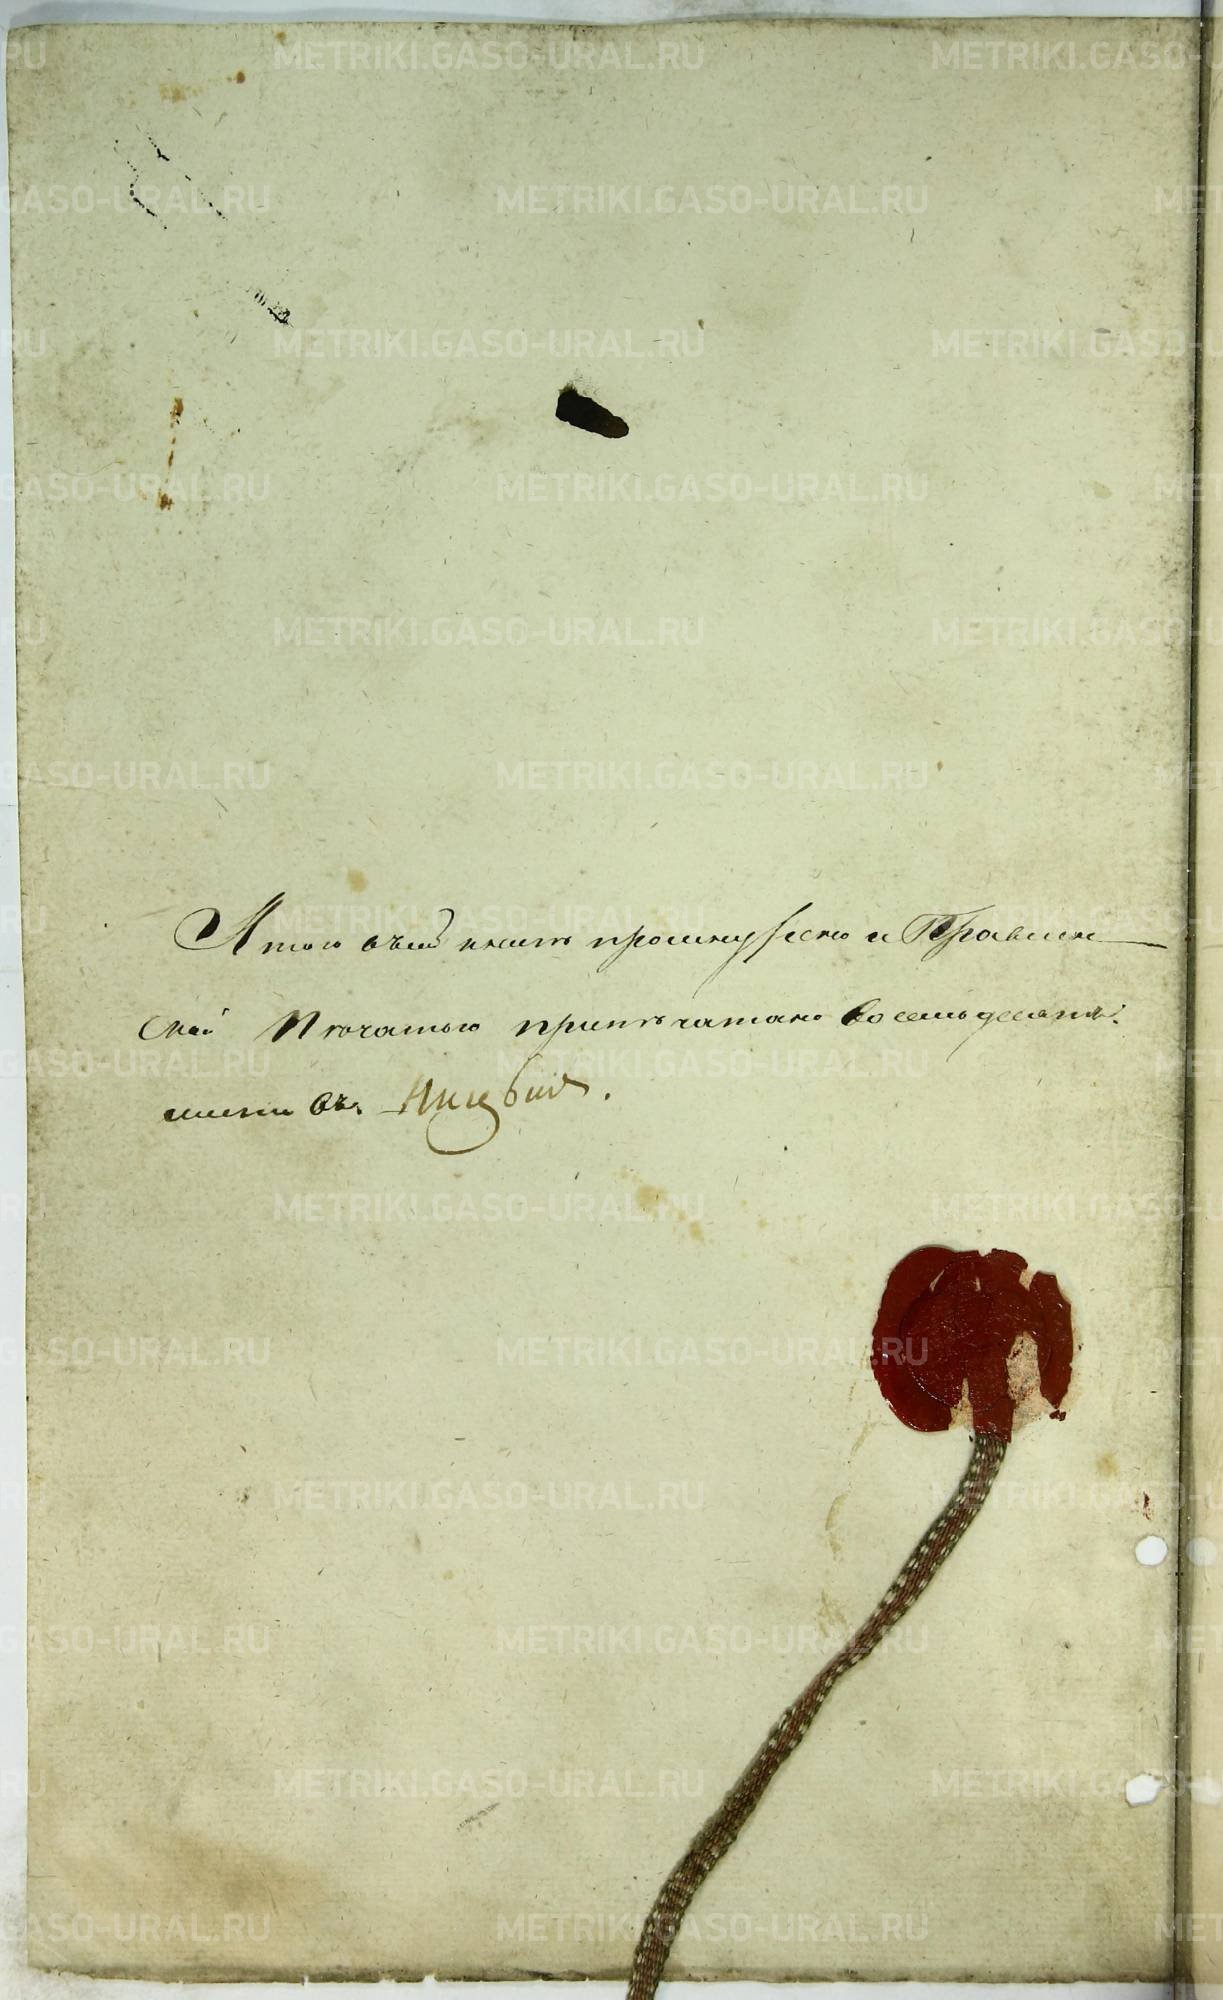 METRIKI.GASO-URAL.RU
А того въ сей книге прошнурено и Правлен
ской Печатью припечатано восемьдесятъ
листовъ.